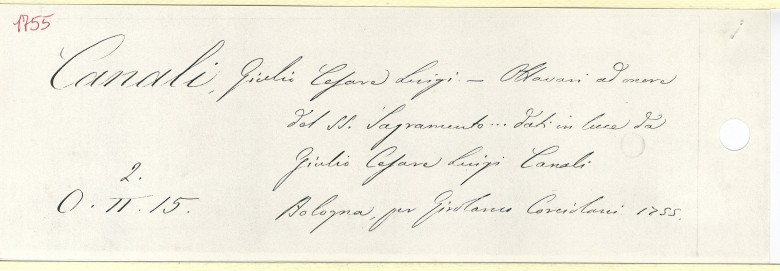 1755
Canali, Giulio Cesare Luigi. — Ottavari ad onore
del SS. Sagramento... dati in luce da
Giulio Cesare Luigi Canali
2.
O. II. 15.
Bologna, per Girolamo Corciolani 1755.